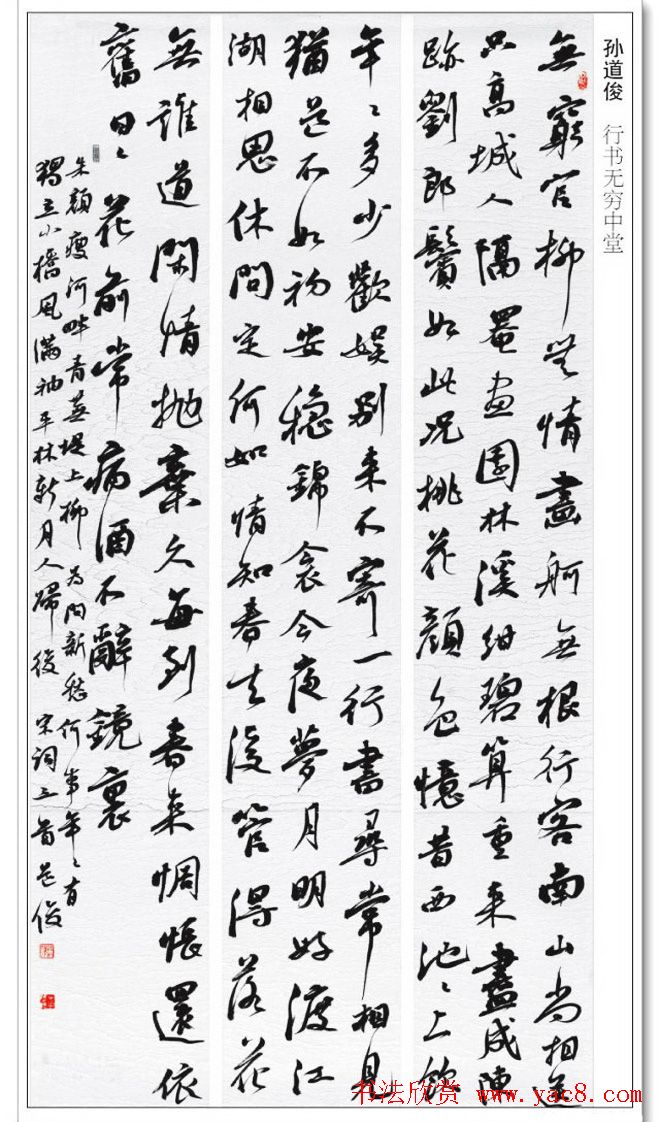 孙道俊 行书无穷中堂
無窮官柳無情畫舸無根行客南山尚相送
只高城人隔罨画園林溪紺碧算重来盡成陳
跡劉郎鬢如此況桃花顏色憶昔西池〻上飲
年〻多少歡娛別来不寄一行書尋常相見
猶道不如初安穩錦衾今夜夢月明好渡江
湖相思休問定何如情知春去後管得落花
無誰道閑情抛棄久每到春来惆悵還依
舊日〻花前常病酒不辭鏡裏
朱顏瘦河畔青蕪堤上柳為問新愁何事年〻有
獨立小橋風满袖平林新月人歸後 宋词三首道俊
书法欣赏 www.yac8.com